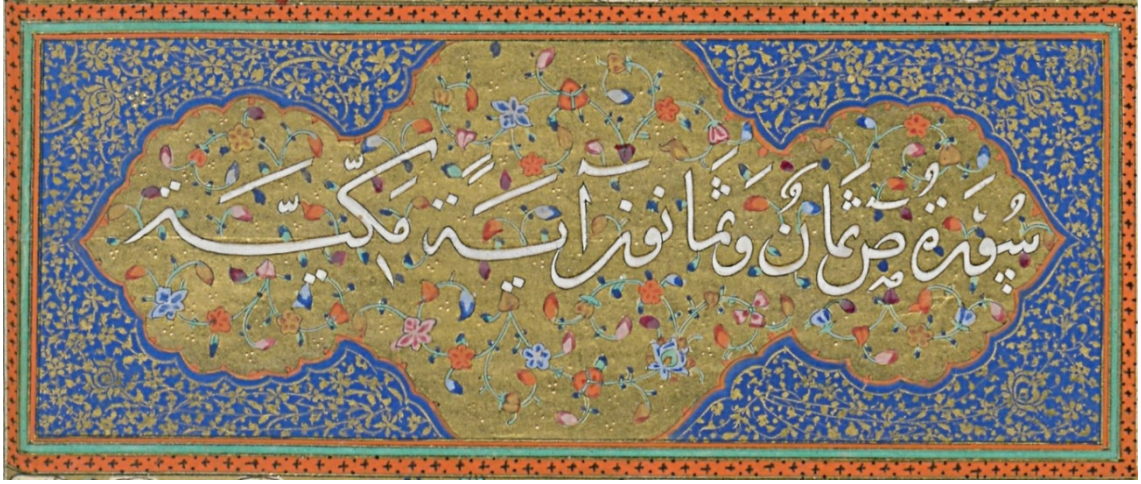 سُوۡرَةُ صٓ ثَمَانٌ وَثَمَانوُنَ آيَةً مَكِّيَّة